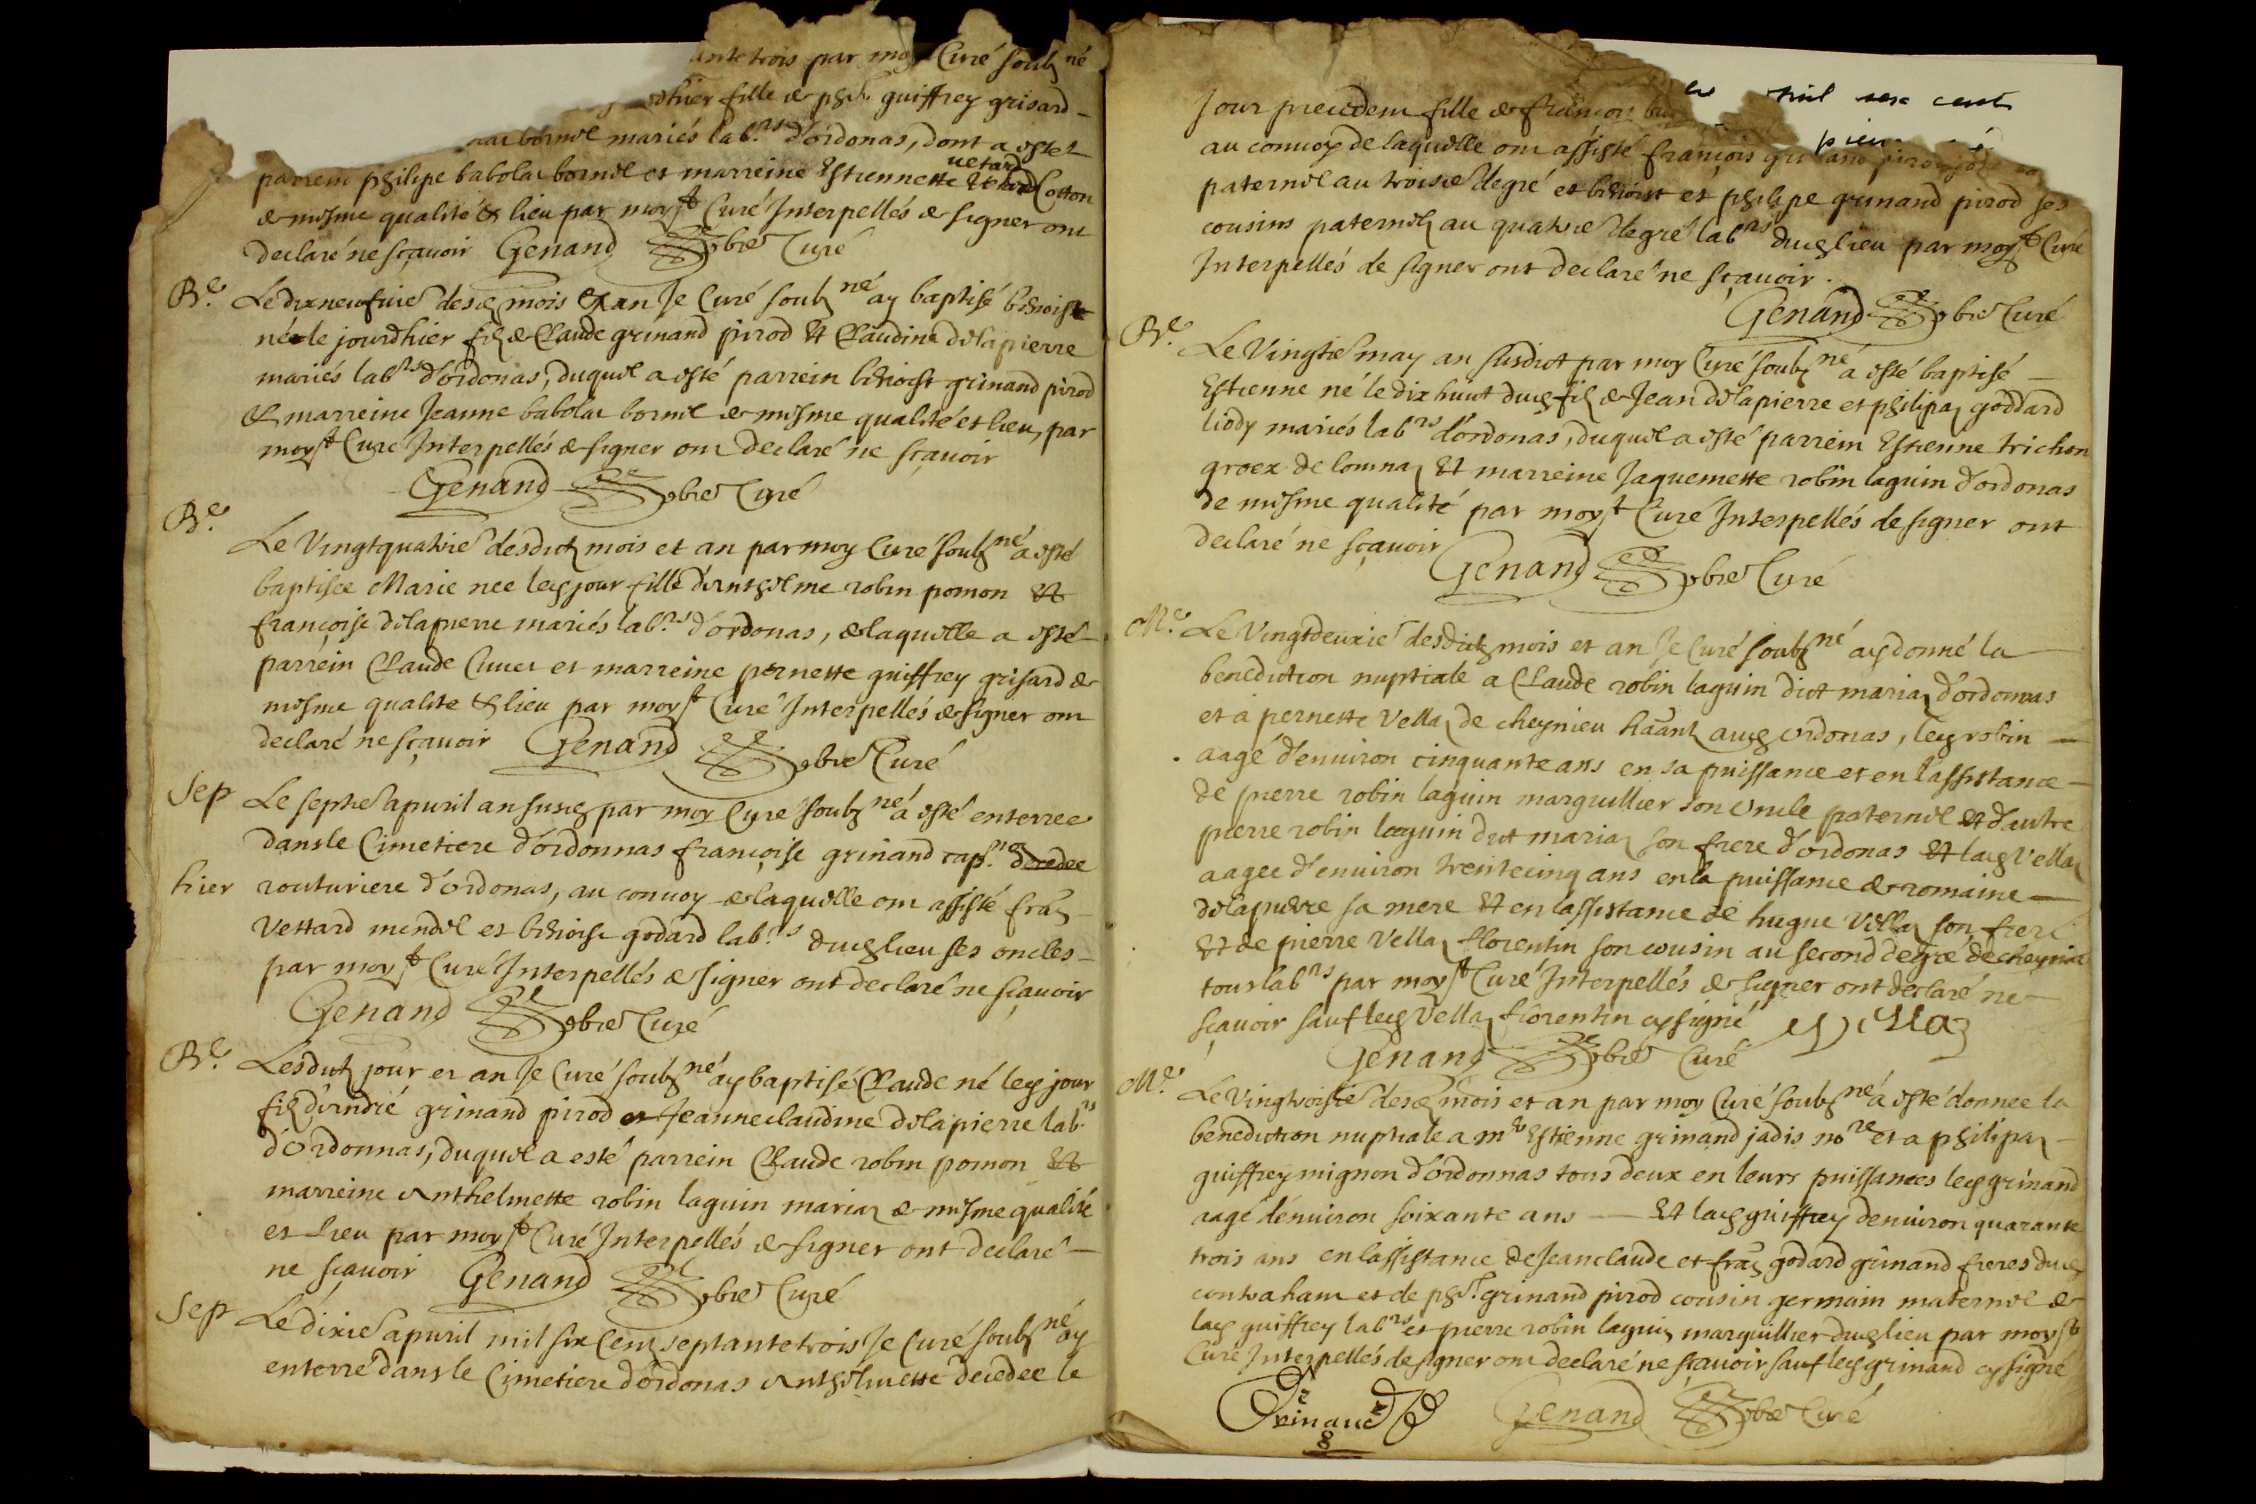 trois par moy Curé soubz né
hier fille de phe. guiffrey grisard
bornel mariés lab.rs d'ordonas, dont a estet
parrein philipe babolat bornel et marreine Estiennette vetard Cotton
de mesme qualité & lieu par moy st Curé Interpellés de signer ont
declaré ne sçavoir Genand pbre Curé
B.e Le dixneufuie desd mois & an Je Curé soubz né ay baptisé benoiste
née le jourdhier fiz de Claude grinand pirod Et Claudine delapierre
mariés lab.rs d'ordonas, duquel a esté parrein benoist grinand pirod
& marreine Jeanne babolat bornel de mesme qualité et lieu, par
moy st Curé Interpellés de signer ont declaré ne sçavoir
Genand pbre Curé
B.e
Le Vingtquatrie desdictz mois et an par moy Curé soubz né a esté
baptisee Marie nee led jour fille d'anthelme robin pomon Et
françoise delapierre mariés lab.rs d'ordonas, de laquelle a esté
parrein Claude Cuuet et marreine pernette guiffrey grisard de
mesme qualite & lieu par moy st Curé Interpellés de signer ont
declaré ne sçavoir Genand pbre Curé
Sep Le septie apuril an susd par moy Curé soubz né a esté enterree
dans le Cimetiere d'ordonnas françoise grinand cap.ne decedee
hier routuriere d'ordonas, au convoy de laquelle ont assisté fraz
Vettard mendel et benoist godard lab.rs dud lieu ses oncles
par moy st Curé Interpellés de signer ont declaré ne sçavoir
Genand pbre Curé
B.e Lesdictz jour et an Je Curé soubz né ay baptisé Claude né led jour
fiz d'andré grinand pirod et Jeanneclaudine delapierre lab.rs
d'Ordonnas, duquel a esté parrein Claude robin pomon Et
marreine Anthelmette robin laguin mariaz de mesme qualité
et Lieu par moy st Curé Interpellés de signer ont declaré
ne sçavoir Genand pbre Curé
Sep Le dixie apuril mil six Cent septantetrois Je Curé soubz né ay
enterré dans le Cimetiere d'ordonas Anthelmette decedee le
mil six cent
Jour precedent fille de françois
au convoy de laquelle ont assisté françois grinand pirod
paternel au troisie degré et benoist et philipe grinand pirod ses
cousins paternelz au quatrie degré lab.rs dud lieu par moy st Curé
Interpellés de signer ont declaré ne sçavoir.
Genand pbre Curé
B.e
Le Vingtie may an susdict par moy Curé soubz né a esté baptisé
Estienne né le dixhuict dud fiz de Jean delapierre et philipaz goddard
liody mariés lab.rs d'ordonas, duquel a esté parrein Estienne trichon
groex de lomnaz Et marreine Jaquemette robin laguin d'ordonas
de mesme qualité par moy st Curé Interpellés de signer ont
declaré ne sçavoir Genand pbre Curé
M.e Le Vingtdeuxie desdictz mois et an Je Curé soubz né ay donné la
benediction nuptiale a Claude robin laguin dict mariaz d'ordonnas
et a pernette Vellaz de cheynieu h̃ãntz aud ordonas, led robin
aagé d'environ cinquante ans en sa puissance et en l'assistance
de pierre robin laguin marguillier son Oncle paternel et d'autre
pierre robin laguin dict mariaz son frere d'ordonas Et lad Vellaz
aagee d'environ trentecinq ans en la puissance de romaine
delapierre sa mere Et en l'assistance de hugue Vellaz son frere
Et de pierre Vellaz florentin son cousin au second degré de cheynieu
tous lab.rs par moy st Curé Interpellés de signer ont declaré ne
sçavoir sauf led Vellaz florentin cy signé Vellaz
Genand pbre Curé
M.e
Le Vingtroisie desd mois et an par moy Curé soubz né a esté donnee la
benediction nuptiale a m.e Estienne grinand jadis no.re et a philipaz
guiffrey mignon d'ordonnas tous deux en leurs puissances led grinand
aagé d'environ soixante ans Et lad guiffrey denviron quarante
trois ans en lassistance de Jeanclaude et fraz godard grinand freres dud
contrahant et de phe. grinand pirod cousin germain maternel de
lad guiffrey lab.rs et pierre robin laguin marguillier dud lieu par moy st
Curé Interpellés de signer ont declaré ne sçavoir sauf led grinand cy signé
Grinand Genand pbre Curé